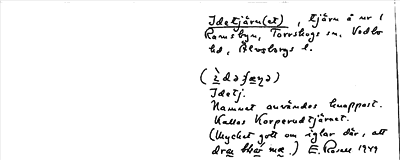 Idetjärn(et), tjärn å nr 1
Ramsbyn, Torrskogs sn, Vedbo
hd, Älvsborgs l.
Idetj.
Namnet användes knappast.
Kallas Korperudtjärnet.
(Mycket gott om iglar där, att
E. Rosell 1949